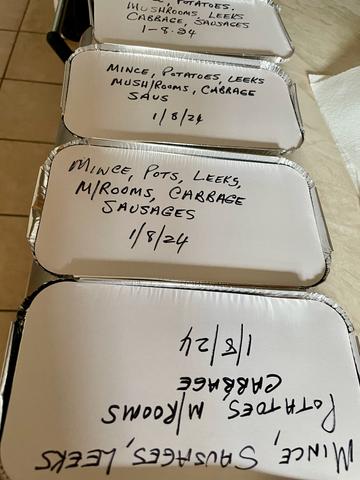 , POTATOES.
MUSHROOMS, LEEKS
CABBAGE, SAUSAGES
1-8.24
MINCE, POTATOES, LEEKS
MUSH/ROOMS, CABBAGE
SAUS
1/8/24
MINCE, POTS, LEEKS,
M/ROOMS, CABBAGE
SAUSAGES
1/8/24
MINCE, SAUSAGES, LEEKS
POTATOES, M/ROOMS
CABBAGE
1/8/24